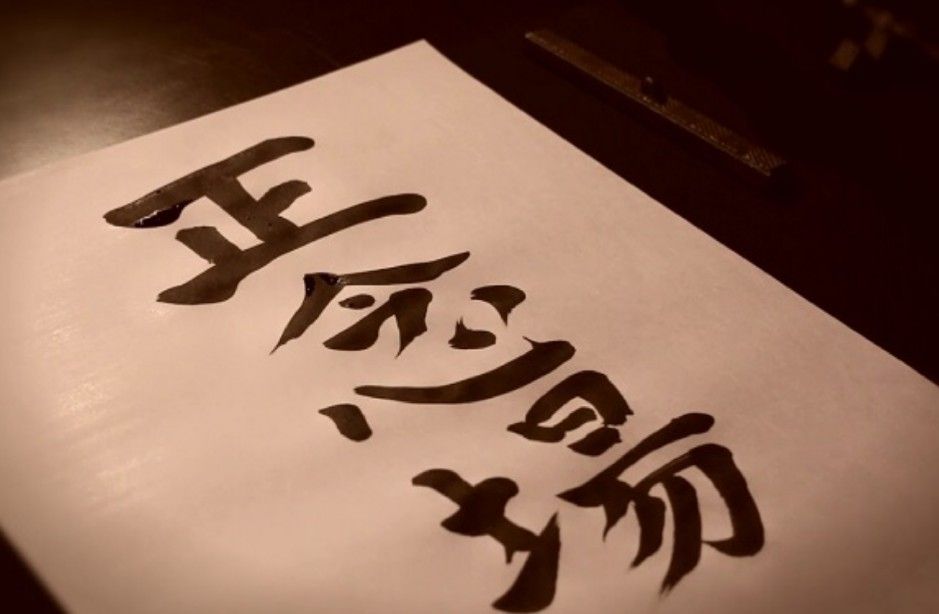 正念場